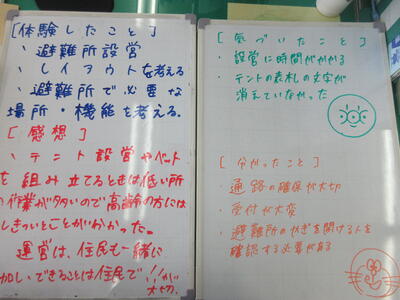 [体験したこと]
・避難所設営
・レイアウトを考える
・避難所で必要な
場所・機能を考える.
[感想]
・テント設営やベット
を組み立てるときは低い所
の作業が多いので高齢の方には
しきついとことがいわかった。
運営は、住民も一緒に
加しできることは住民で!!が
大切.
[気づいたこと]
・設営に時間がかかる
・テントの表札の文字が
消えていなかった
[分かったこと]
・通路の確保が大切
・受付が大変
・避難所のかぎを開ける人を
確認する必要がある